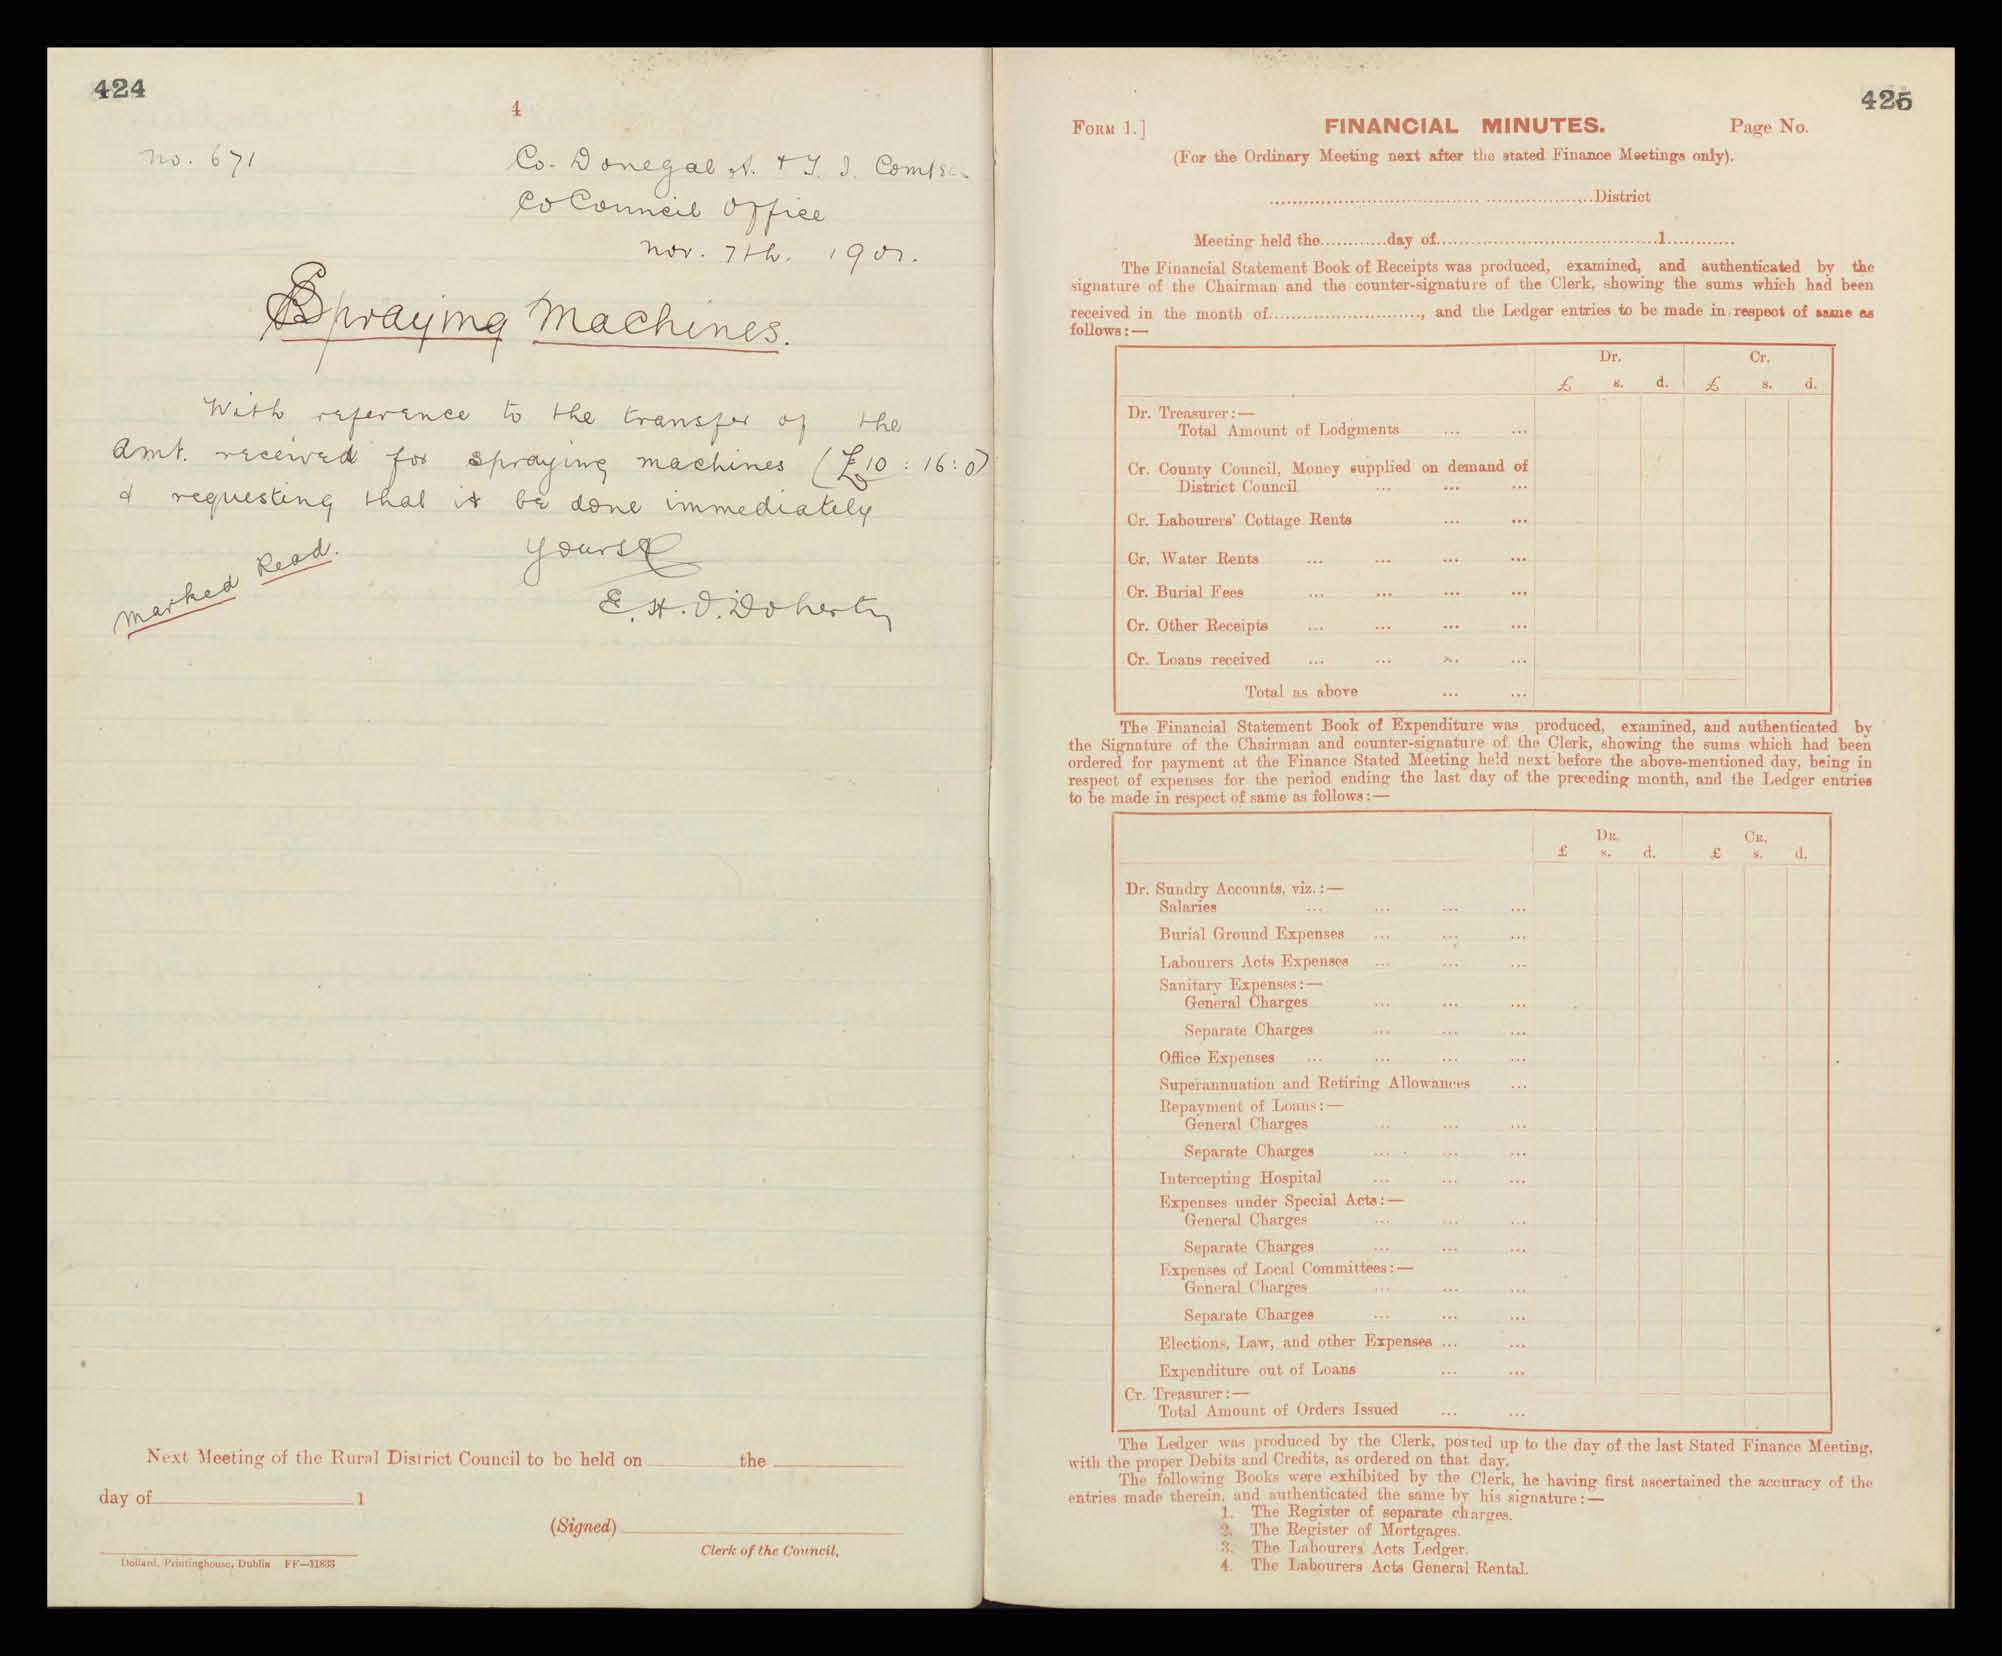 424
4
No. 671
Co. Donegal A. & T. I. Comtee.
Co Council Office
Nov. 7th. 1901.
Spraying Machines.
With reference to the transfer of the
amt. received for spraying machines (£10 : 16 : 0)
& requesting that it be done immediately
Yours &
E. H. O. Doherty
Marked Read.
Next Meeting of the Rural District Council to be held on the
day of 1
(Signed)
Clerk of the Council,
Dollard, Printinghouse, Dublin FF—11833
425
FORM 1.] FINANCIAL MINUTES. Page No.
(For the Ordinary Meeting next after the stated Finance Meetings only).
District
Meeting held the............day of............1............
The Financial Statement Book of Receipts was produced, examined, and authenticated by the
signature of the Chairman and the counter-signature of the Clerk, showing the sums which had been
received in the month of............, and the Ledger entries to be made in respect of same as
follows:—
Dr. Cr.
£ s. d. £ s. d.
Dr. Treasurer:—
Total Amount of Lodgments ... ...
Cr. County Council, Money supplied on demand of
District Council ... ... ...
Cr. Labourers' Cottage Rents ... ...
Cr. Water Rents ... ... ... ...
Cr. Burial Fees ... ... ... ...
Cr. Other Receipts ... ... ... ...
Cr. Loans received ... ... ... ...
Total as above ... ...
The Financial Statement Book of Expenditure was produced, examined, and authenticated by
the Signature of the Chairman and counter-signature of the Clerk, showing the sums which had been
ordered for payment at the Finance Stated Meeting held next before the above-mentioned day, being in
respect of expenses for the period ending the last day of the preceding month, and the Ledger entries
to be made in respect of same as follows:—
DR. CR.
£ s. d. £ s. d.
Dr. Sundry Accounts, viz.:—
Salaries ... ... ... ...
Burial Ground Expenses ... ... ...
Labourers Acts Expenses ... ... ...
Sanitary Expenses:—
General Charges ... ... ...
Separate Charges ... ... ...
Office Expenses ... ... ... ...
Superannuation and Retiring Allowances ...
Repayment of Loans:—
General Charges ... ... ...
Separate Charges ... ... ...
Intercepting Hospital ... ... ...
Expenses under Special Acts:—
General Charges ... ... ...
Separate Charges ... ... ...
Expenses of Local Committees:—
General Charges ... ... ...
Separate Charges ... ... ...
Elections, Law, and other Expenses ... ...
Expenditure out of Loans ... ...
Cr. Treasurer:—
Total Amount of Orders Issued ... ...
The Ledger was produced by the Clerk, posted up to the day of the last Stated Finance Meeting,
with the proper Debits and Credits, as ordered on that day.
The following Books were exhibited by the Clerk, he having first ascertained the accuracy of the
entries made therein, and authenticated the same by his signature:—
1. The Register of separate charges.
2. The Register of Mortgages.
3. The Labourers Acts Ledger.
4. The Labourers Acts General Rental.